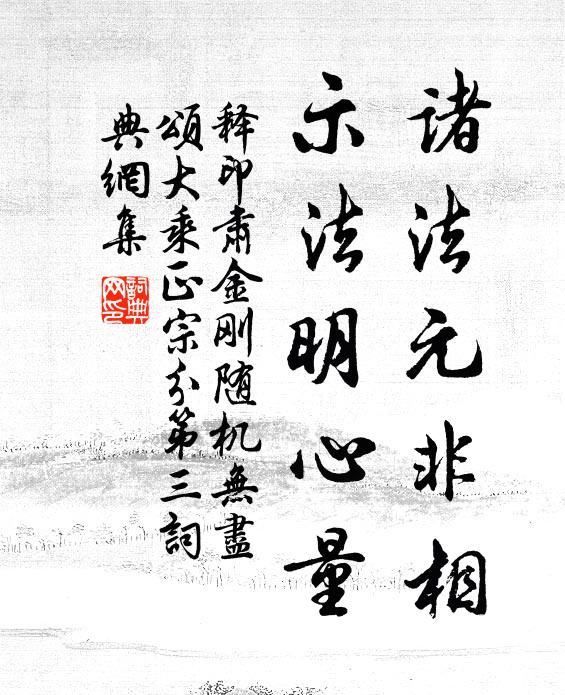 諸法元非相
示法明心量
释印肃金刚随机無盡
頌大乘正宗分第三詞
典網集
詞典
网印